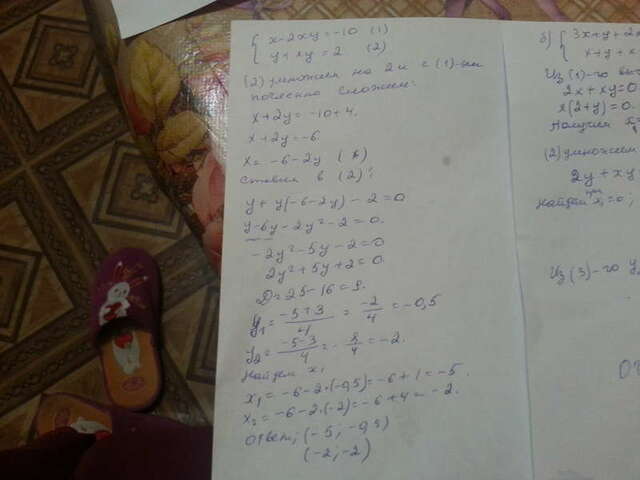 { x - 2xy = -10 (1)
y + xy = 2 (2)
(2) умножим на 2 и с (1)-ым
почленно сложим:
x + 2y = -10 + 4.
x + 2y = -6.
x = -6 - 2y (*)
Ставим в (2):
y + y(-6 - 2y) - 2 = 0
y - 6y - 2y² - 2 = 0.
-2y² - 5y - 2 = 0
2y² + 5y + 2 = 0.
D = 25 - 16 = 9.
y₁ = (-5+3)/4 = -2/4 = -0,5
y₂ = (-5-3)/4 = -8/4 = -2.
Найдем x;
x₁ = -6 - 2·(-0,5) = -6 + 1 = -5.
x₂ = -6 - 2·(-2) = -6 + 4 = -2.
Ответ; (-5; -0,5)
(-2; -2)
б) { 3x + y + 2x
x + y + x
Из (1)-го выч
2x + xy = 0
x(2 + y) = 0.
Получим x
(2) умножим
2y + xy
Найдем при x₁ = 0;
Из (3)-го y₂
От